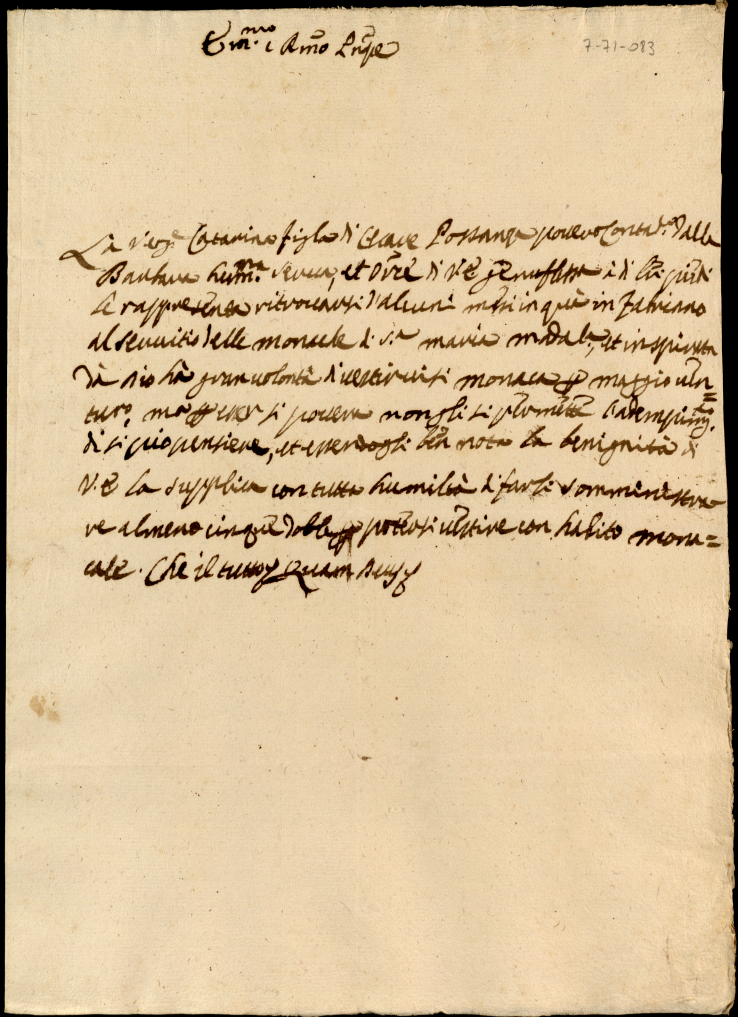 Em.mo i Rmo Prñpe
7-71-083
La Verg.e Catarina figla di Cesare Possanza povero Contad.e dalla
Barbara humma serva, et Orce di V.E genuflessa à di Lei piedi
le rappresenta ritrovarsi d'alcuni mesi in quà in Fabriano
al servitio delle monache di S.ta maria madale, et inspirata
da Dio hà gran volontà di vestirsi monaca p maggio ven=
turo, ma p esser si povera non gli si permette l'adempim.to
di si pio pensiere, et essendogli ben nota la benignità di
V.E la supplica con tutta humiltà di farli somministra
re almeno cinque doble p potersi vestire con habito mona=
cale. Che il tutto Quam Deus